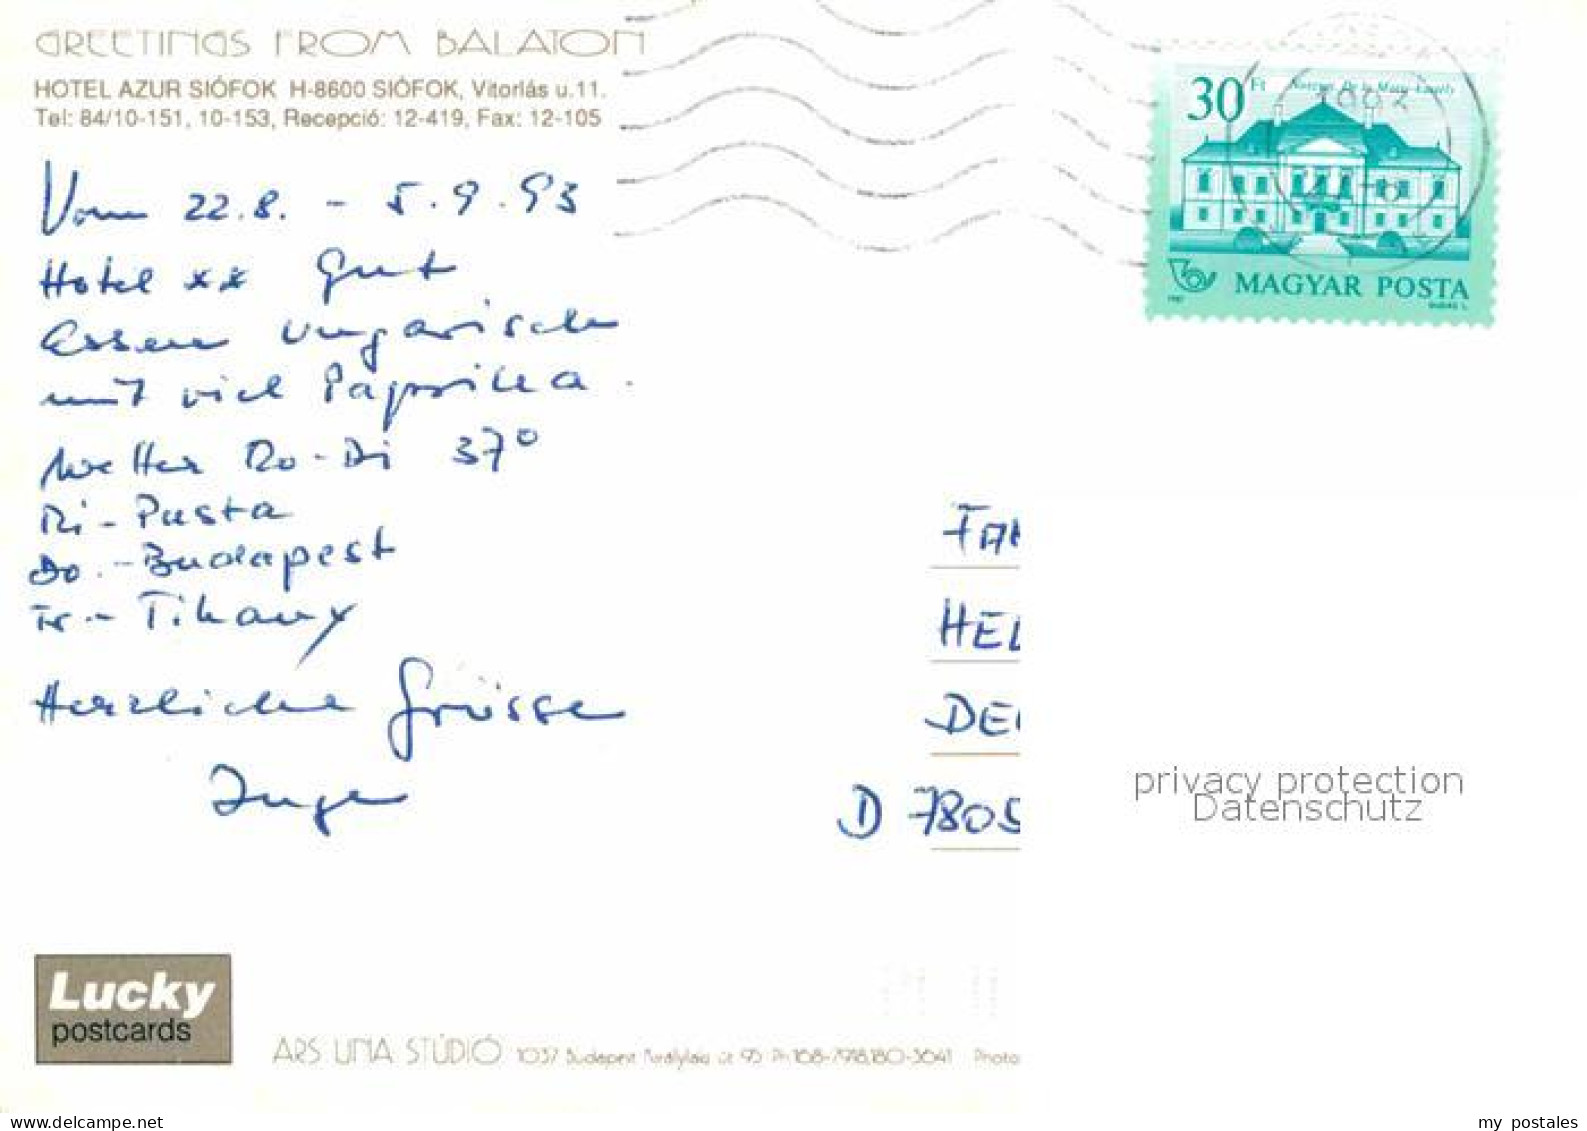 GREETINGS FROM BALATON
HOTEL AZUR SIÓFOK H-8600 SIÓFOK, Vitorlás u.11.
Tel: 84/10-151, 10-153, Recepció: 12-419, Fax: 12-105
30 Ft
MAGYAR POSTA
Vom 22.8. - 5.9.93
Hotel xx gut
Essen ungarisch
mit viel Paprika.
Wetter Do-Di 37°
Mi - Pusta
Do. - Budapest
Fr. - Tihany
Herzliche Grüsse
Inge
FAM
HEL
DE
D 7805
privacy protection
Datenschutz
Lucky
postcards
ARS UNA STÚDIÓ 1037 Budapest Királylaki út 95 Ph 168-7978,180-3641 Photo
my postales